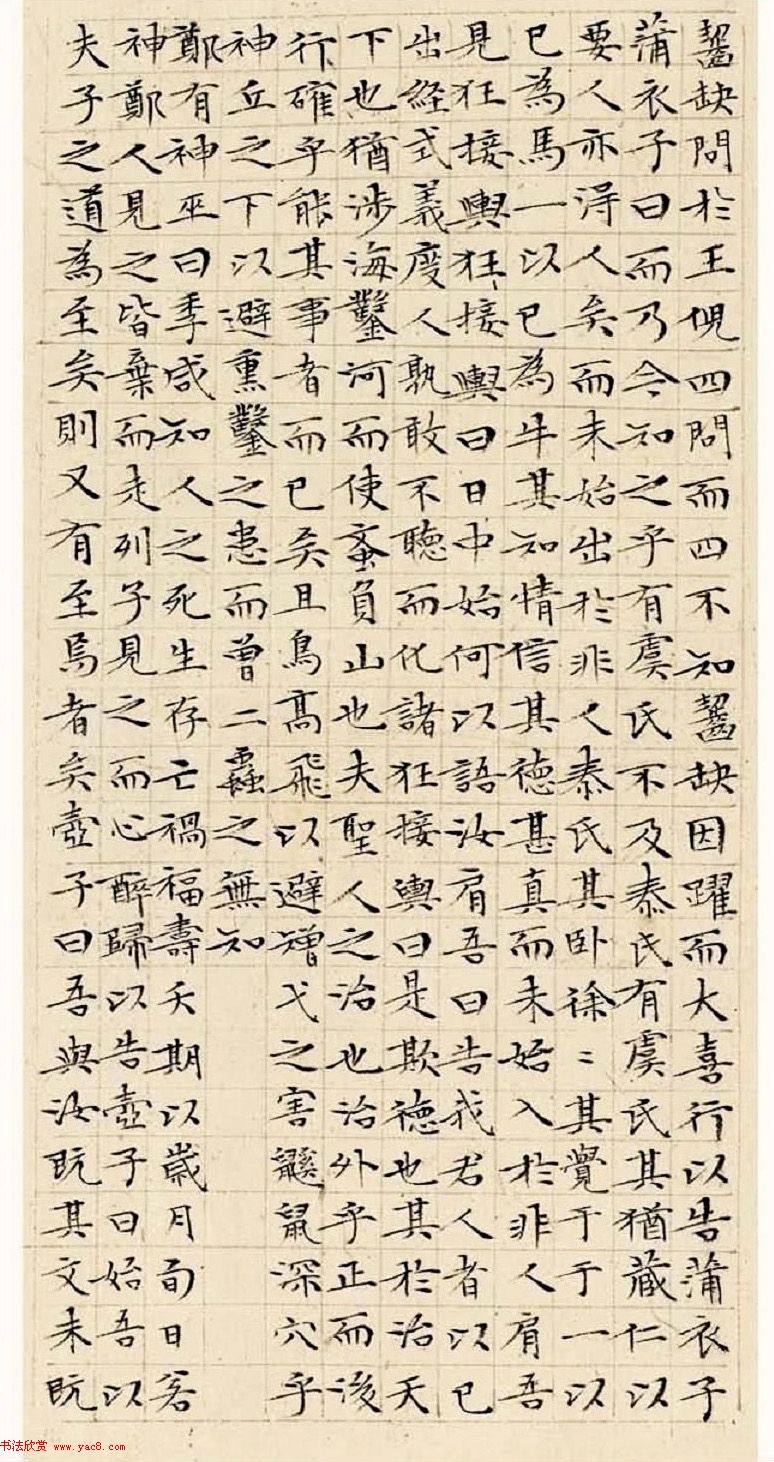 齧缺問於王倪四問而四不知齧缺因躍而大喜行以告蒲衣子
蒲衣子曰而乃今知之乎有虞氏不及泰氏有虞氏其猶藏仁以
要人亦得人矣而未始出於非人泰氏其卧徐〻其覺于于一以
已為馬一以已為牛其知情信其德甚真而未始入於非人肩吾
見狂接輿狂接輿曰日中始何以語汝肩吾曰告我君人者以已
出經式義度人孰敢不聽而化諸狂接輿曰是欺德也其於治天
下也猶涉海鑿河而使蚉負山也夫聖人之治也治外乎正而後
行確乎能其事者而已矣且鳥高飛以避矰弋之害鼷鼠深穴乎
神丘之下以避熏鑿之患而曾二蟲之無知
鄭有神巫曰季咸知人之死生存亡禍福壽夭期以歲月旬日若
神鄭人見之皆棄而走列子見之而心醉歸以告壺子曰始吾以
夫子之道為至矣則又有至焉者矣壺子曰吾與汝既其文未既
书法欣赏 www.yac8.com